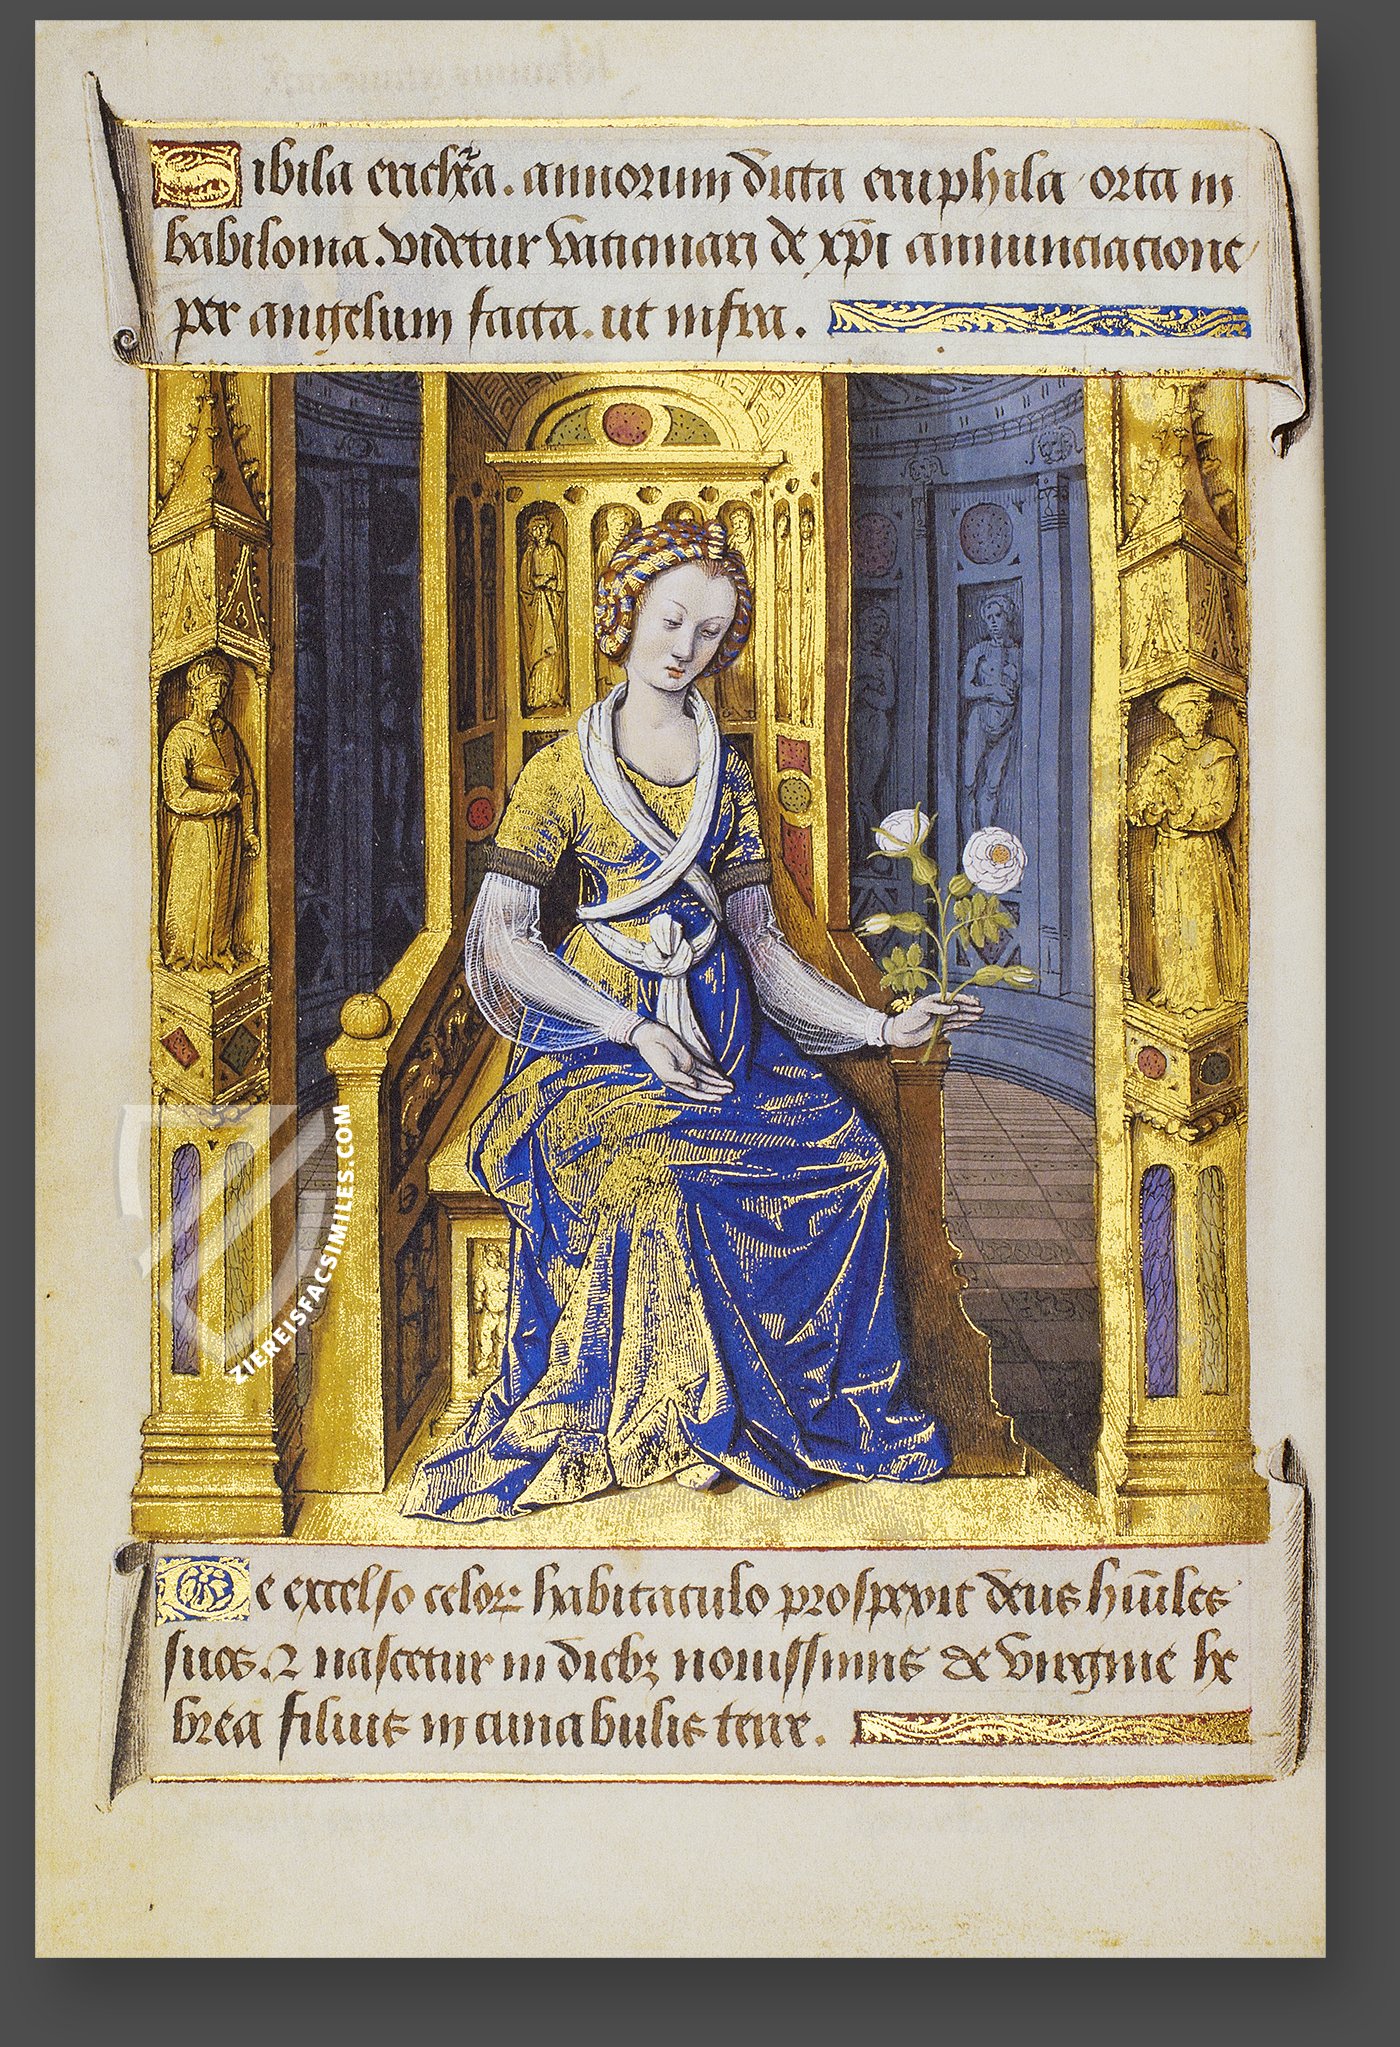 Sibila erichꝛ̃a. annorum dicta eriiphila orta in
babilonia. videtur vaticinari de xp̄i annunciatione
per angelum facta. ut infra.
De excelso celoꝝ habitaculo prospexit deus hūiles
suos. ⁊ nascetur in diebꝫ nouissimis de virgine he
brea filius in cunabulis terre.
ZIEREISFACSIMILES.COM